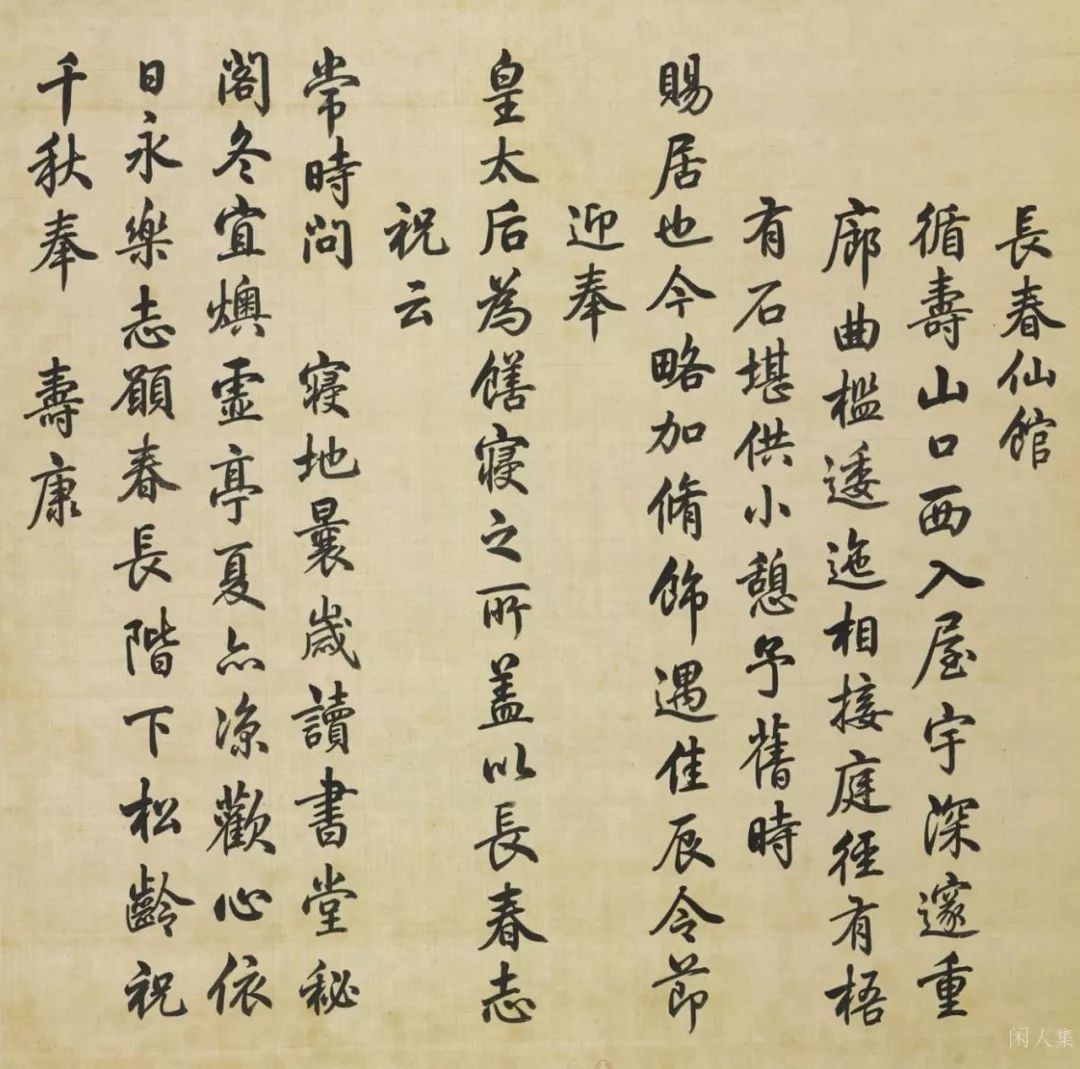 長春仙館
循壽山口西入屋宇深邃重
廊曲檻逶迤相接庭徑有梧
有石堪供小憩予舊時
賜居也今略加脩飾遇佳辰令節
迎奉
皇太后為饍寢之所蓋以長春志
祝云
常時問 寢地曩歲讀書堂秘
閣冬宜燠虛亭夏亦涼歡心依
日永樂志願春長階下松齡祝
千秋奉 壽康
闲人集